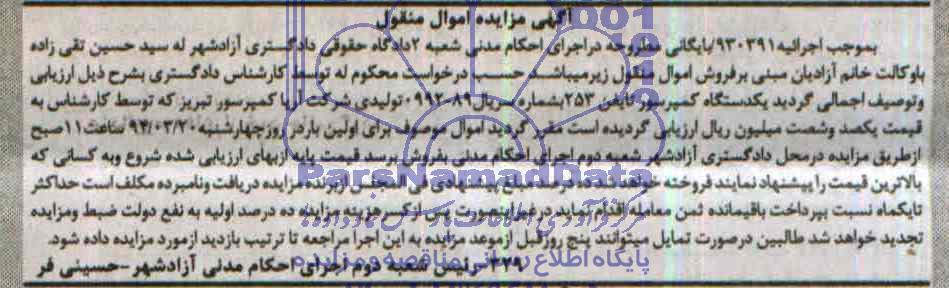 آگهی مزایده اموال منقول
بموجب اجرائیه ۹۳۰۳۹۱/بایگانی مطروحه دراجرای احکام مدنی شعبه ۲دادگاه حقوقی دادگستری آزادشهر له سید حسین تقی زاده
باوکالت خانم آزادیان مبنی برفروش اموال منقول زیرمیباشد حسب درخواست محکوم له توسط کارشناس دادگستری بشرح ذیل ارزیابی
وتوصیف اجمالی گردید یکدستگاه کمپرسور بشماره سریال تولیدی شرکت آریا کمپرسور تبریز که توسط کارشناس به
قیمت یکصد وشصت میلیون ریال ارزیابی گردیده است مقرر گردید اموال موصوف برای اولین باردر روزچهارشنبه ۹۴/۰۳/۲۰ ساعت ۱۱صبح
ازطریق مزایده درمحل دادگستری آزادشهر شعبه دوم اجرای احکام مدنی بفروش برسد قیمت پایه ازبهای ارزیابی شده شروع وبه کسانی که
بالاترین قیمت را پیشنهاد نمایند فروخته خواهد شد ده درصد مبلغ پیشنهادی فی المجلس ازبرنده مزایده دریافت ونامبرده مکلف است حداکثر
تایکماه نسبت بپرداخت باقیمانده ثمن معامله اقدام نماید درغیراینصورت پس ازکسرهزینه مزایده ده درصد اولیه به نفع دولت ضبط ومزایده
تجدید خواهد شد طالبین درصورت تمایل میتوانند پنج روزقبل ازموعد مزایده به این اجرا مراجعه تا ترتیب بازدید ازمورد مزایده داده شود.
۳۲۹-رئیس شعبه دوم اجرای احکام مدنی آزادشهر-حسینی فر
ParsNamadData
پایگاه اطلاع رسانی مناقصه ومزایده